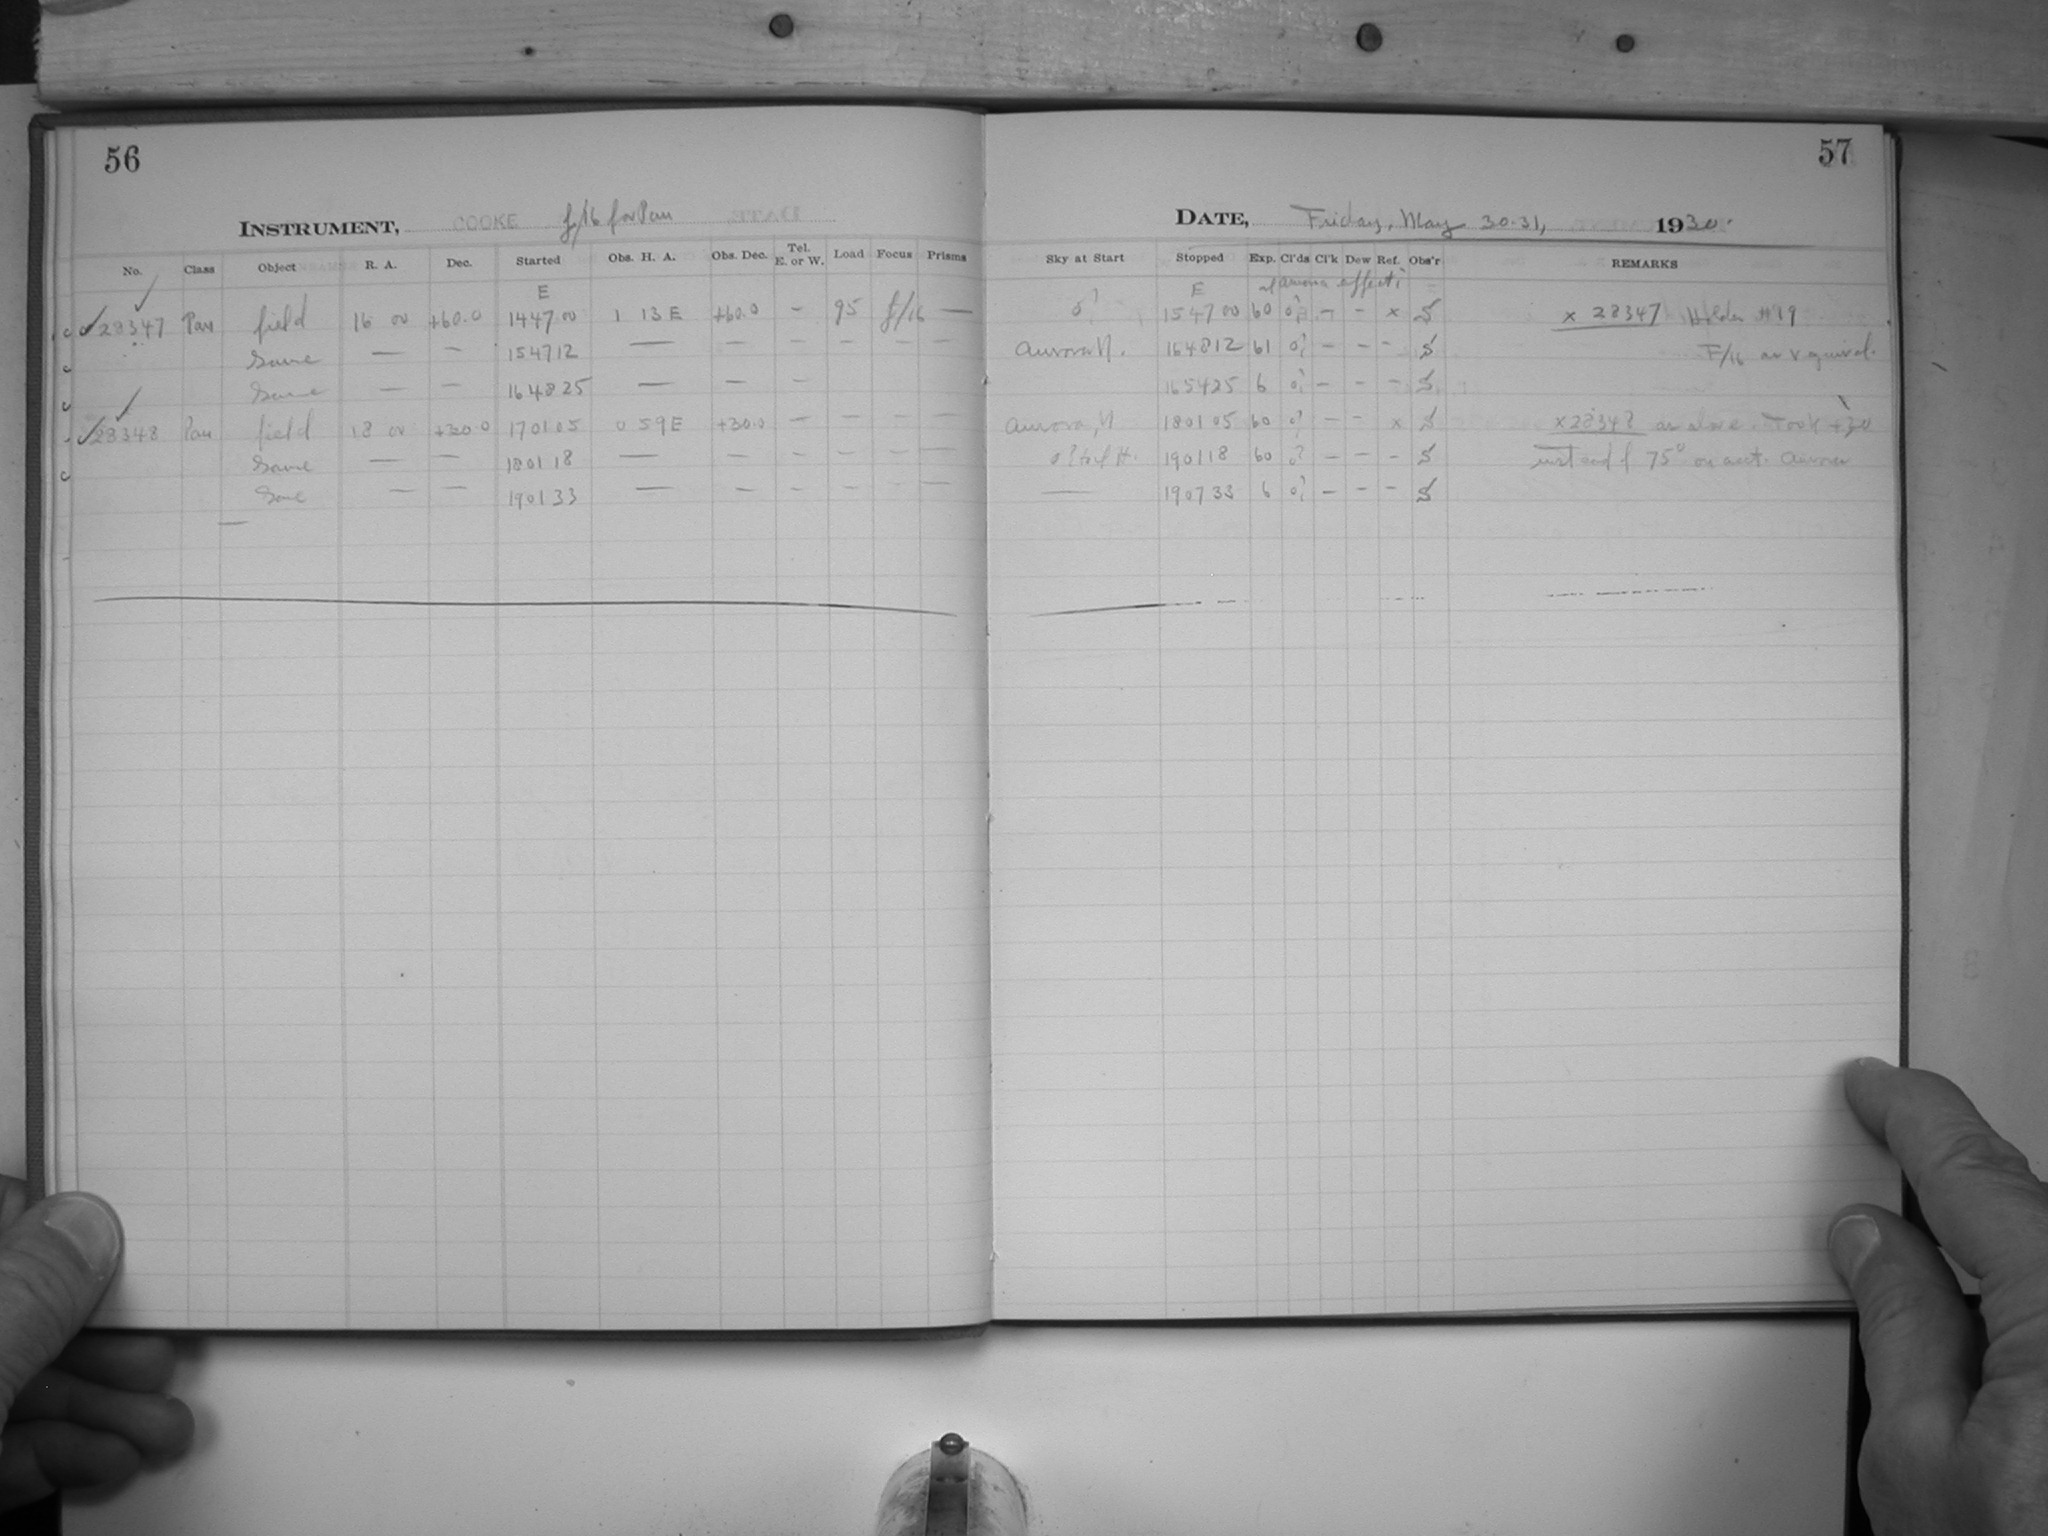 56
INSTRUMENT, COOKE f/16 for Pan
No. Class Object R. A. Dec. Started Obs. H. A. Obs. Dec. Tel. E. or W. Load Focus Prisms
E
28347 Pan field 16 00 +60.0 1447 00 1 13 E +60.0 - 95 f/16 —
Same — — 154712 — — — — — —
Same — — 164825 — — —
28348 Pan field 18 00 +30.0 170105 0 59 E +30.0 — — — —
Same — — 180118 — — — — — —
Same — — 190133 — — — — — —
57
DATE, Friday, May 30-31, 1930.
Sky at Start Stopped Exp. Cl'ds Cl'k Dew Ref. Obs'r REMARKS
E aurora effect
0? 1547 00 60 0? — — x S x 28347 Holder #19
Aurora N. 164812 61 0? — — — S F/16 as required.
165425 6 0? — — — S
Aurora, N 180105 60 0? — — x S x28348 as above. Took +30
0? 190118 60 0? — — — S instead of 75° on acct. Aurora
— 190733 6 0? — — — S